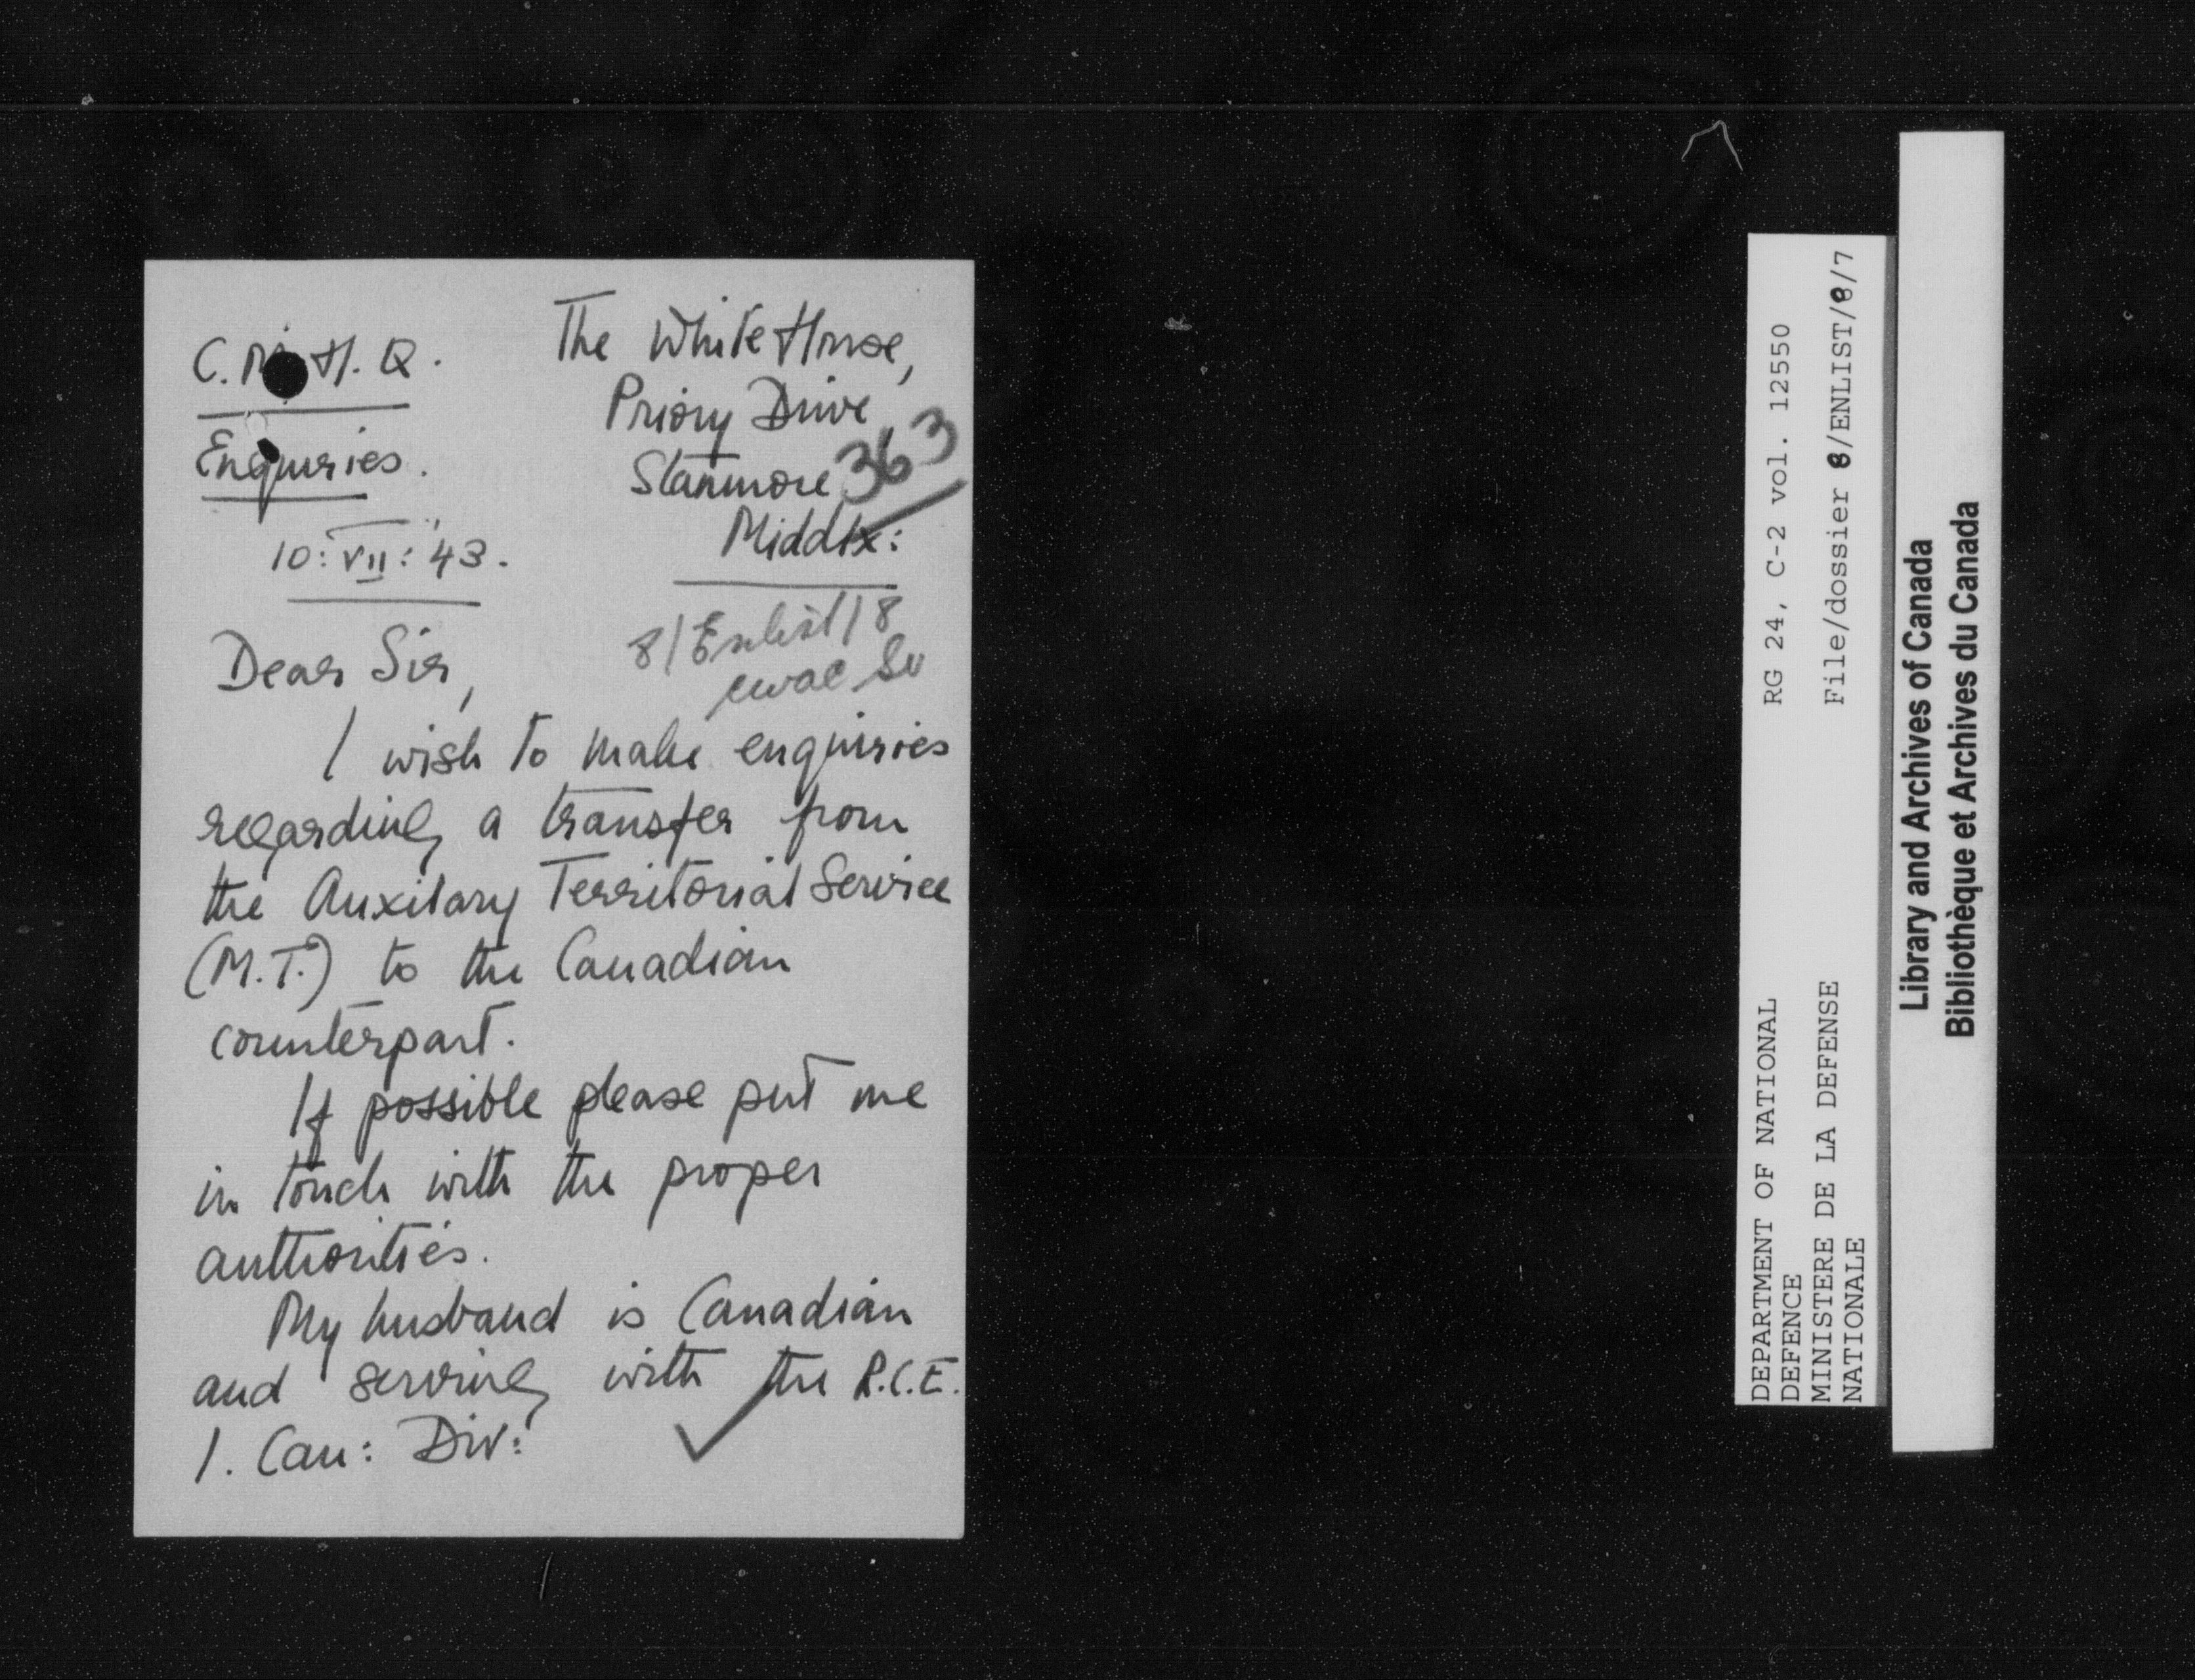 C.M.H.Q.
Enquiries.
10:VII:'43.
The White House,
Priory Drive
Stanmore
Middlx:
363
8/Enlist/8
cwac
Dear Sir,
I wish to make enquiries
regarding a transfer from
the Auxilary Territorial Service
(M.T.) to the Canadian
counterpart.
If possible please put me
in touch with the proper
authorities.
My husband is Canadian
and serving with the R.C.E.
1. Can: Div:
RG 24, C-2 vol. 12550
File/dossier 8/ENLIST/8/7
DEPARTMENT OF NATIONAL
DEFENCE
MINISTERE DE LA DEFENSE
NATIONALE
Library and Archives of Canada
Bibliothèque et Archives du Canada